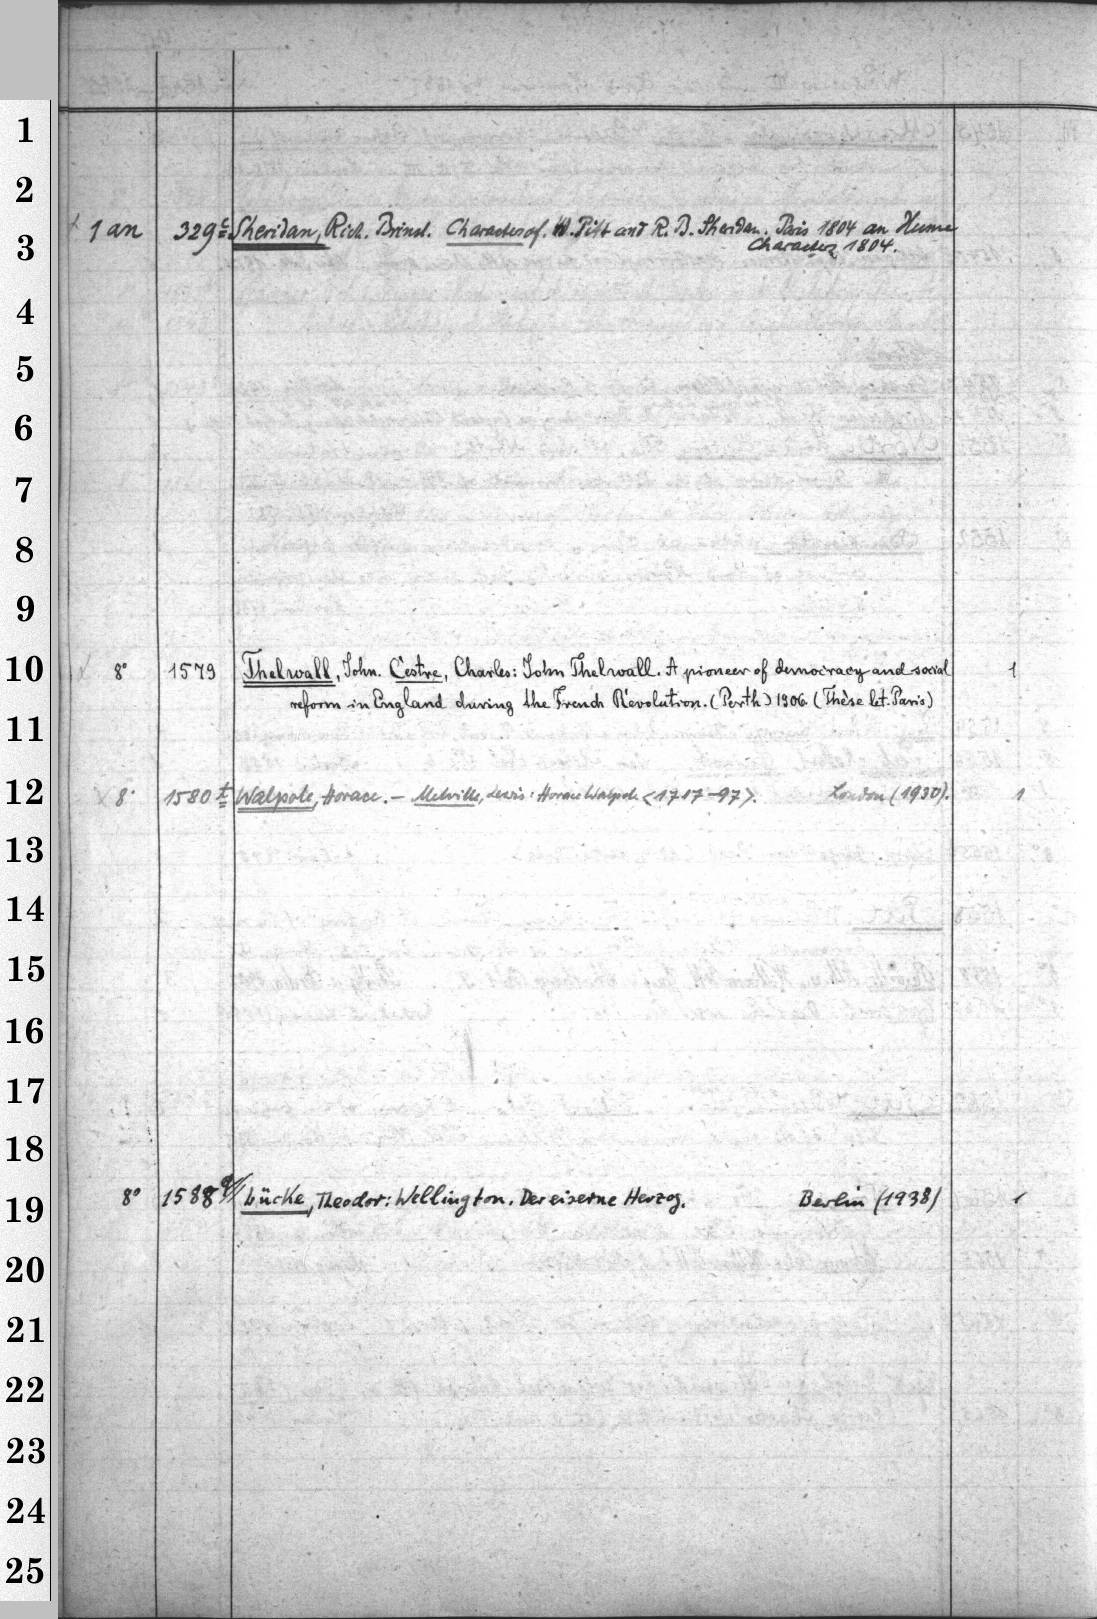 1
2
1 an 329 c Sheridan, Rich. Brinsl. Characters of W. Pitt and R. B. Sheridan. Paris 1804 an Hume
3
Character 1804.
4
5
6
7
8
9
10 8° 1579 Thelwall, John. Cestre, Charles: John Thelwall. A pioneer of democracy and social 1
reform in England during the French Révolution. (Perth) 1906. (Thèse let. Paris)
11
12 8° 1580 t Walpole, Horace. – Melville, Lewis: Horace Walpole <1717–97>. London (1930). 1
13
14
15
16
17
18
19 8° 1588 Lücke, Theodor: Wellington. Der eiserne Herzog. Berlin (1938) 1
20
21
22
23
24
25